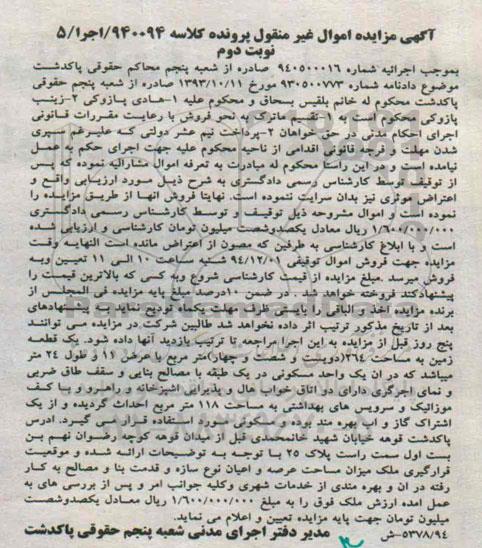 آگهی مزایده اموال غیر منقول پرونده کلاسه ۹۴۰۰۹۴/اجرا/۵
نوبت دوم
بموجب اجرائیه شماره ۹۴۰۵۰۰۰۱۶ صادره از شعبه پنجم محاکم حقوقی پاکدشت
موضوع دادنامه شماره ۹۳۰۵۰۰۷۷۳ مورخ ۱۳۹۳/۱۰/۱۱ صادره از شعبه پنجم حقوقی
پاکدشت محکوم له خانم بلقیس بسحاق و محکوم علیه ۱-هادی پازوکی ۲-زینب
پازوکی محکوم است به ۱-تقسیم ماترک به نحو فروش با رعایت مقررات قانونی
اجرای احکام مدنی در حق خواهان ۲-پرداخت نیم عشر دولتی که علیرغم سپری
شدن مهلت و فرجه قانونی اقدامی از ناحیه محکوم علیه جهت اجرای حکم به عمل
نیامده است و در این راستا محکوم له مبادرت به تعرفه اموال مشارالیه نموده که پس
از توقیف توسط کارشناس رسمی دادگستری به شرح ذیل مورد ارزیابی واقع و
اعتراض موثری نیز بدان سرایت ننموده است. نهایتا فروش آنها از طریق مزایده را
نموده است و اموال مشروحه ذیل توقیف و توسط کارشناس رسمی دادگستری
۱/۶۰۰/۰۰۰/۰۰۰ ریال معادل یکصدوشصت میلیون تومان کارشناسی و ارزیابی شده
است و با ابلاغ کارشناسی به طرفین که مصون از اعتراض مانده است النهایه وقت
مزایده جهت فروش اموال توقیفی ۹۴/۱۲/۰۱ شنبه ساعت ۱۰ الی ۱۱ تعیین وبه
فروش میرسد .مبلغ مزایده از قیمت کارشناسی شروع وبه کسی که بالاترین قیمت را
پیشنهادکند فروخته خواهد شد . در ضمن ۱۰درصد مبلغ پایه مزایده فی المجلس از
برنده مزایده اخذ و الباقی را بایستی ظرف مهلت یکماه تودیع نماید به پیشنهادهای
بعد از تاریخ مذکور ترتیب اثر داده نخواهد شد طالبین شرکت در مزایده می توانند
پنج روز قبل از مزایده به این اجرا مراجعه تا ترتیب بازدید آنها داده شود. یک قطعه
زمین به مساحت ۲۶۴(دویست و شصت و چهار)متر مربع با عرض ۱۱ و طول ۲۴ متر
میباشد که در آن یک واحد مسکونی در یک طبقه با مصالح بنایی و سقف طاق ضربی
و نمای آجرگری دارای دو اتاق خواب هال و پذیرایی آشپزخانه و راهرو و با کف
موزائیک و سرویس های بهداشتی به مساحت ۱۱۸ متر مربع احداث گردیده و از یک
اشتراک گاز و آب بهره مند بوده و مسکونی مورد استفاده قرار می گیرد. آدرس
پاکدشت قوهه خیابان شهید خانمحمدی قبل از میدان قوهه کوچه رضوان نهم بن
بست اول سمت راست پلاک ۲۵ با توجه به توضیحات ارائه شده و موقعیت
قرارگیری ملک میزان مساحت عرصه و اعیان نوع سازه و قدمت بنا و مصالح به کار
رفته در آن و بهره مندی از خدمات شهری وکلیه جوانب امر و پس از بررسی های به
عمل آمده ارزش ملک فوق را به مبلغ ۱/۶۰۰/۰۰۰/۰۰۰ ریال معادل یکصدوشصت
میلیون تومان جهت پایه مزایده تعیین و اعلام می نماید.
۵۳۷۸/۹۴-ش مدیر دفتر اجرای مدنی شعبه پنجم حقوقی پاکدشت